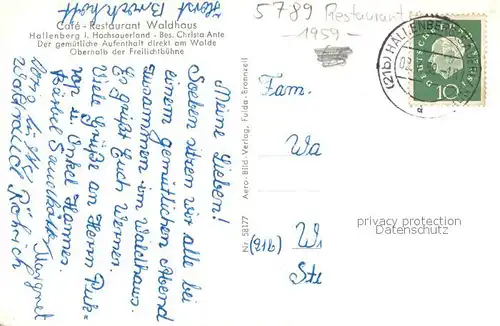 Horst
5789 Restaurant
1959-
Café - Restaurant Waldhaus
Hallenberg i. Hochsauerland - Bes. Christa Ante
Der gemütliche Aufenthalt direkt am Walde
Oberhalb der Freilichtbühne
(21b) HALLENBERG
DEUTSCHE
10
Meine Lieben!
Soeben sitzen wir alle bei
einem gemütlichen Abend
zusammen im Waldhaus.
Es grüßt Euch Werner.
Viele Grüße an Herrn
u Onkel Hannes.
Margret
Waltraud Röhrich
Nr. 58177 Aero-Bild-Verlag, Fulda-Bronnzell
Fam.
Wa
(21b) Wi
Ste
privacy protection
Datenschutz